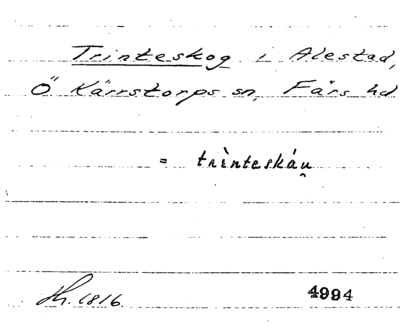 Trinteskog i Alestad,
Ö Kärrstorps sn, Färs hd
= trìnteskáu̯
Hr. 1816. 4994